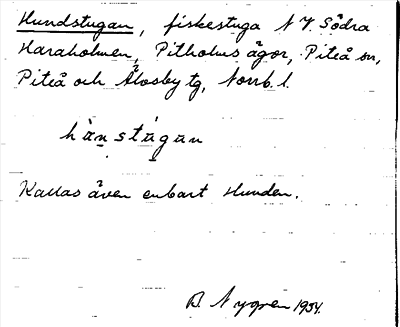 Hundstugan, fiskestuga N V. Södra
Haraholmen, Pitholms ägor, Piteå sn,
Piteå och Älvsby tg, Norrb. l.
hùnstùgan
Kallas även enbart Hunden.
B. Nygren 1934.